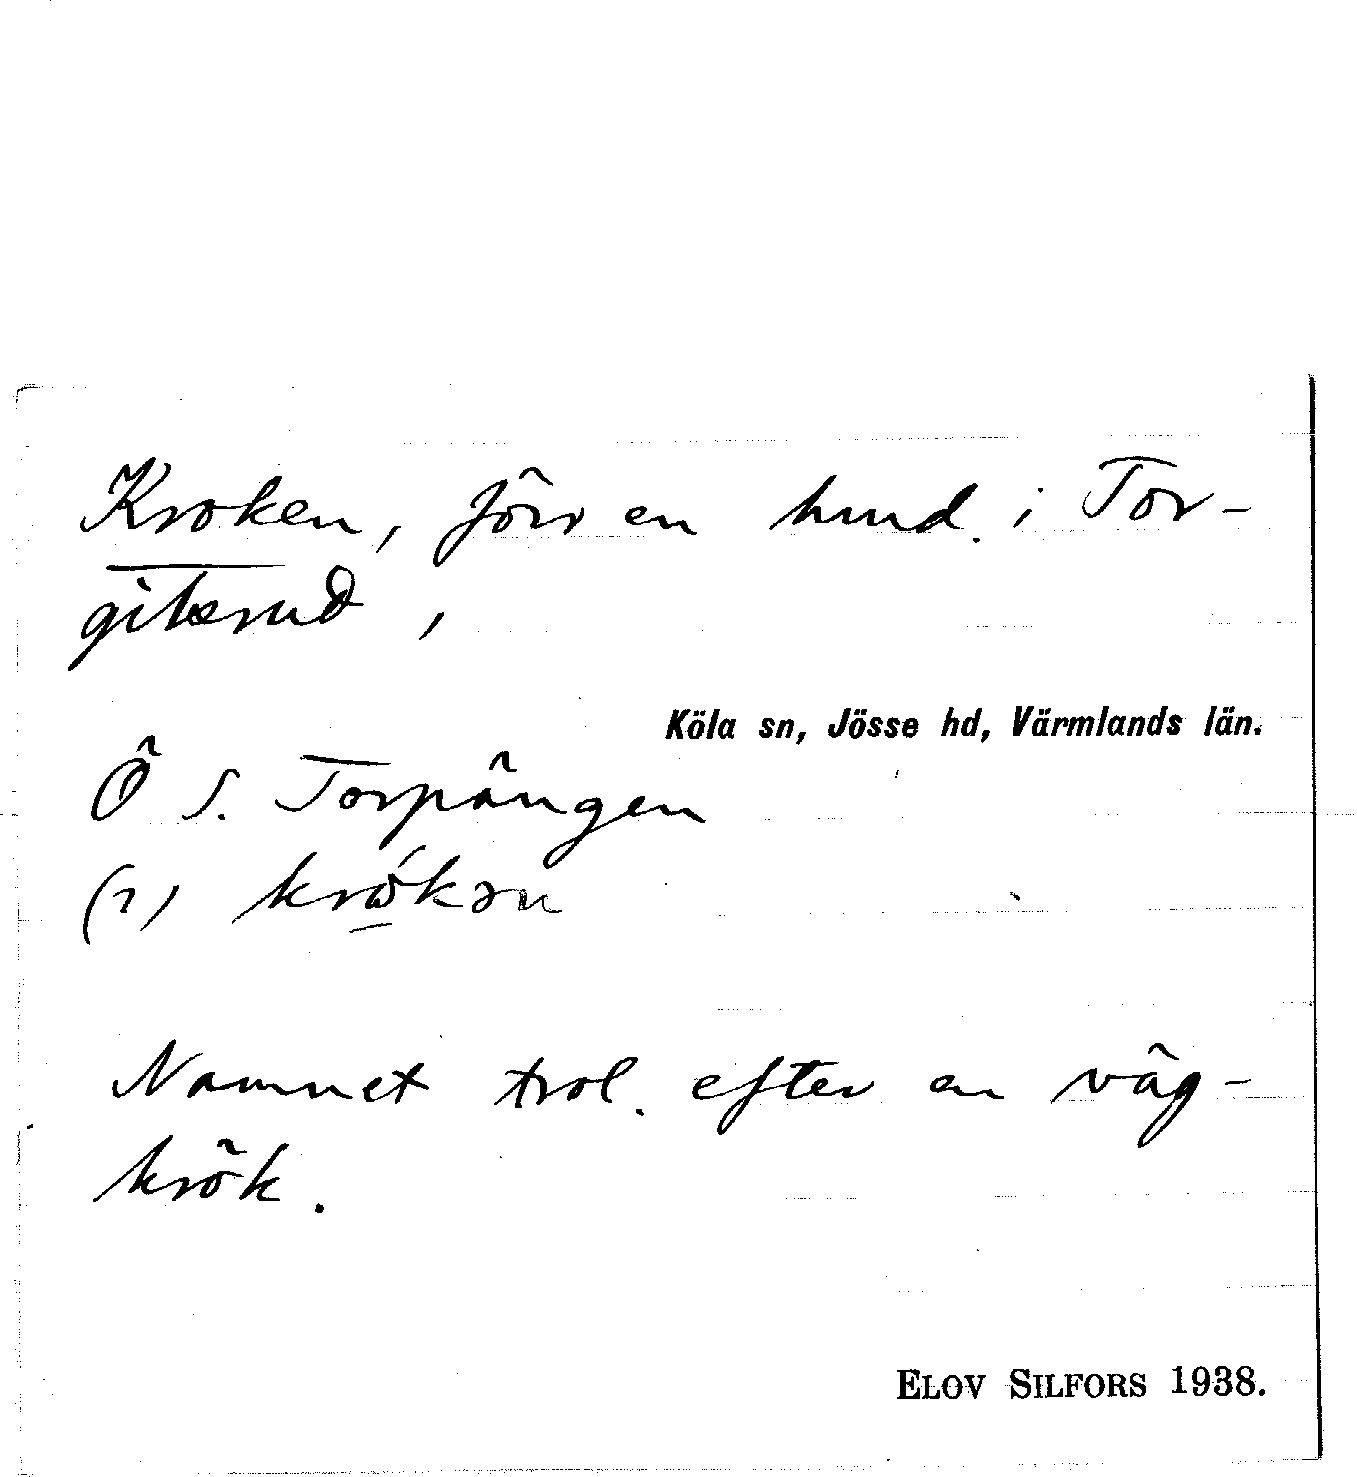 Kroken, förr en hmd. i Tor-
gilsrud,
Köla sn, Jösse hd, Värmlands län.
Ö S. Torpängen
(2) krώ̲kən
Namnet trol. efter en väg-
krök.
ELOV SILFORS 1938.